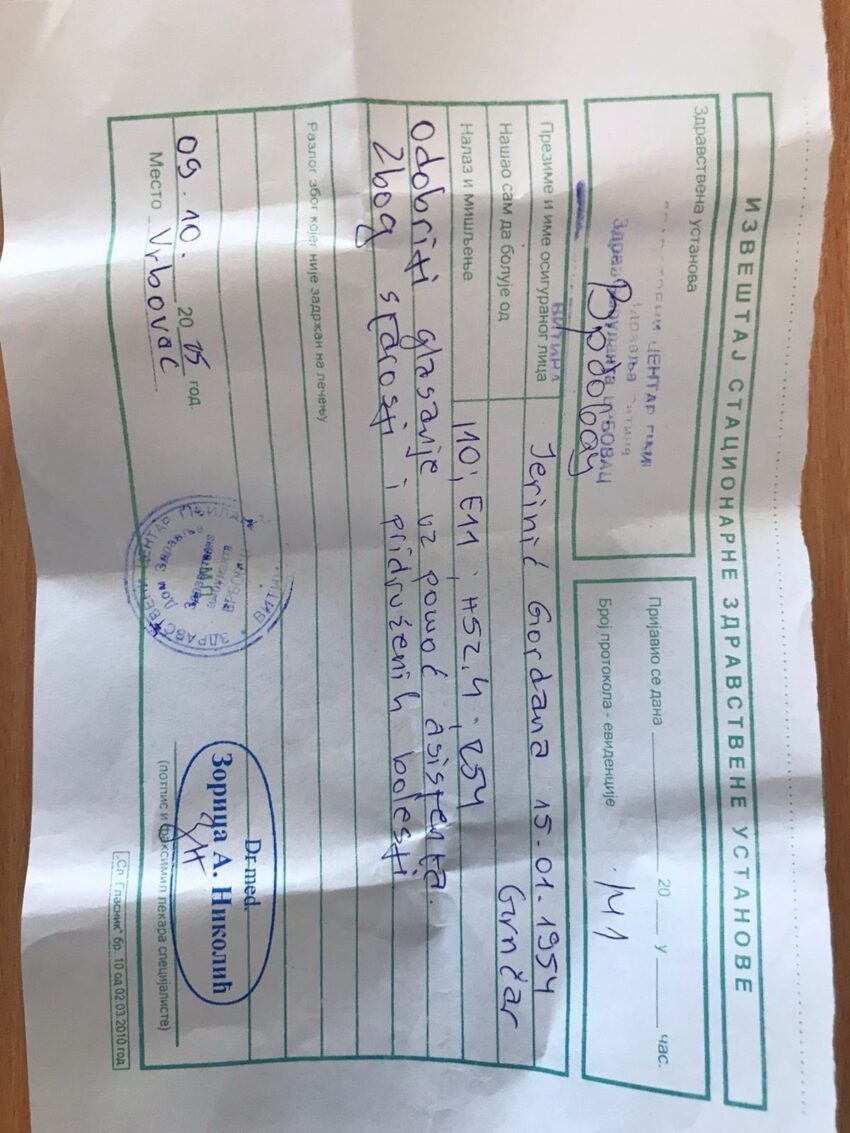 ИЗВЕШТАЈ СТАЦИОНАРНЕ ЗДРАВСТВЕНЕ УСТАНОВЕ
Здравствена установа
ЦЕНТАР
ВИТИНА
Пријавио се дана 20 у час.
Број протокола - евиденције M1
Презиме и име осигураног лица Jerinić Gordana 15.01.1954
Нашао сам да болује од Grnčar
Налаз и мишљење I10; E11, H52.4, Z54
Odobriti glasanje uz pomoć asistenta.
Zbog starosti i pridruženih bolesti
Разлог због којег није задржан на лечењу
09.10. 20 год.
Место Vrbovac
ЗДРАВСТВЕНИ ЦЕНТАР
Dr med.
Зорица А. Николић
(потпис и факсимил лекара специјалисте)
„Сл. Гласник" бр. 10 од 02.03.2010 год.